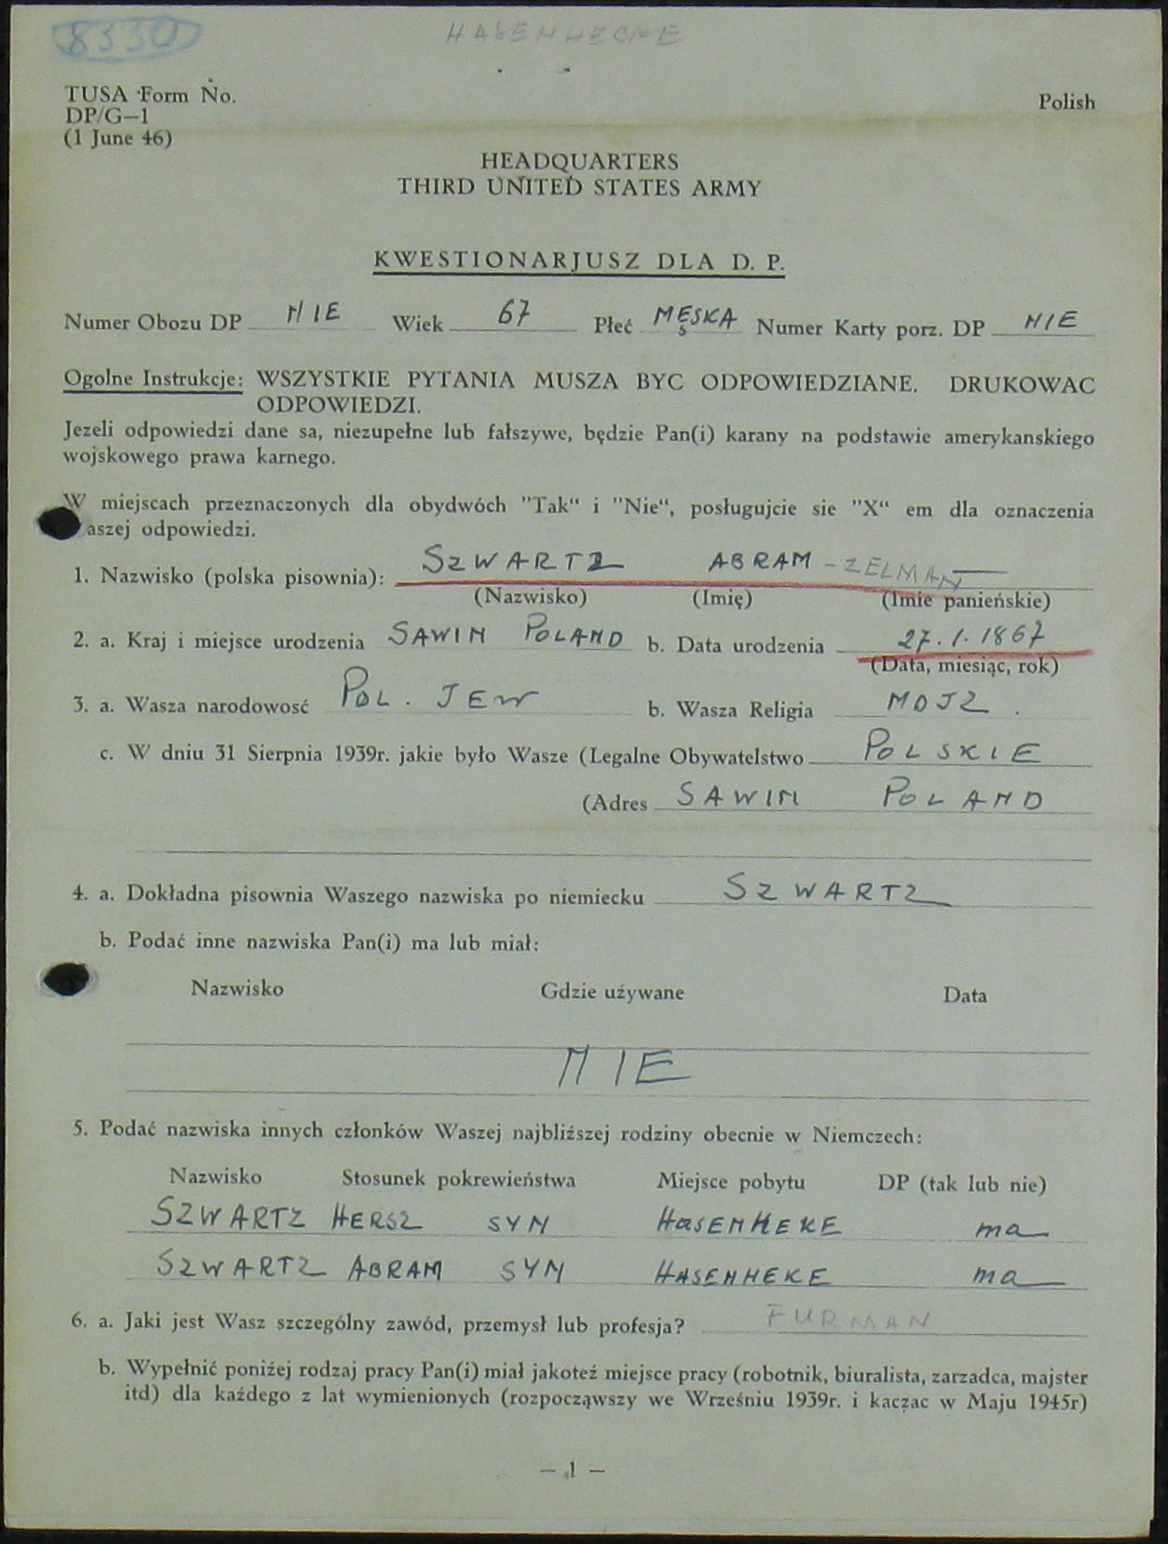 8330 HASENHECKE
TUSA Form No. Polish
DP/G—1
(1 June 46)
HEADQUARTERS
THIRD UNITED STATES ARMY
KWESTIONARJUSZ DLA D. P.
Numer Obozu DP NIE Wiek 67 Płeć MĘSKA Numer Karty porz. DP NIE
Ogolne Instrukcje: WSZYSTKIE PYTANIA MUSZA BYC ODPOWIEDZIANE. DRUKOWAC
ODPOWIEDZI.
Jezeli odpowiedzi dane sa, niezupełne lub fałszywe, będzie Pan(i) karany na podstawie amerykanskiego
wojskowego prawa karnego.
W miejscach przeznaczonych dla obydwóch "Tak“ i "Nie“, posługujcie sie "X“ em dla oznaczenia
aszej odpowiedzi.
1. Nazwisko (polska pisownia): SZWARTZ ABRAM - ZELMAN —
(Nazwisko) (Imię) (Imie panieńskie)
2. a. Kraj i miejsce urodzenia SAWIN POLAND b. Data urodzenia 27. 1. 1867
(Data, miesiąc, rok)
3. a. Wasza narodowosć POL. JEW b. Wasza Religia MOJZ.
c. W dniu 31 Sierpnia 1939r. jakie było Wasze (Legalne Obywatelstwo POLSKIE
(Adres SAWIN POLAND
4. a. Dokładna pisownia Waszego nazwiska po niemiecku SZWARTZ
b. Podać inne nazwiska Pan(i) ma lub miał:
Nazwisko Gdzie używane Data
NIE
5. Podać nazwiska innych członków Waszej najbliższej rodziny obecnie w Niemczech:
Nazwisko Stosunek pokrewieństwa Miejsce pobytu DP (tak lub nie)
SZWARTZ HERSZ SYN HaSENHEKE ma
SZWARTZ ABRAM SYN HASENHEKE ma
6. a. Jaki jest Wasz szczególny zawód, przemysł lub profesja? FURMAN
b. Wypełnić poniżej rodzaj pracy Pan(i) miał jakoteż miejsce pracy (robotnik, biuralista, zarzadca, majster
itd) dla każdego z lat wymienionych (rozpocząwszy we Wrześniu 1939r. i kaczac w Maju 1945r)
— 1 —